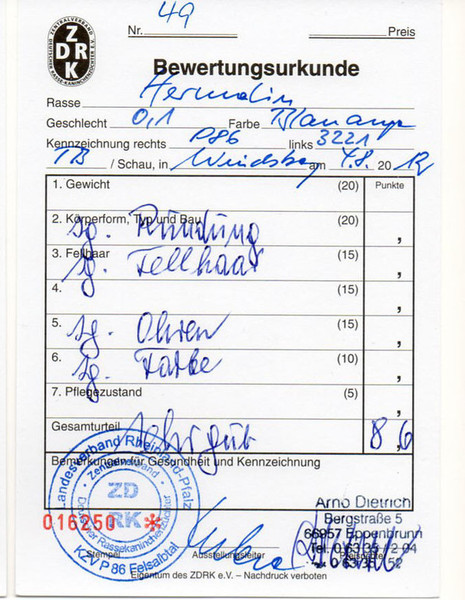 ZENTRALVERBAND
DEUTSCHER RASSE-KANINCHENZÜCHTER E.V.
ZDRK
Nr. 49 Preis
Bewertungsurkunde
Rasse Hermelin
Geschlecht 0,1 Farbe Blauauge
Kennzeichnung rechts P86 links 3221
TB / Schau, in am 4.8. 2012
1. Gewicht (20) Punkte
2. Körperform, Typ und Bau (20) ,
sg. Rundung
3. Fellhaar (15) ,
sg. Fellhaar
4. (15) ,
5. sg. Ohren (15) ,
6. sg. Farbe (10) ,
7. Pflegezustand (5) ,
Gesamturteil sehr gut 8 6
Bemerkungen für Gesundheit und Kennzeichnung
Landesverband Rheinland-Pfalz
Zentralverband
ZD
RK
Deutscher Rassekaninchenzüchter
KZV P 86 Eelsalbtal
016250 *
Arno Dietrich
Bergstraße 5
66957 Eppenbrunn
Tel. 0 63 35
Stempel Ausstellungsleiter
Eigentum des ZDRK e.V. – Nachdruck verboten